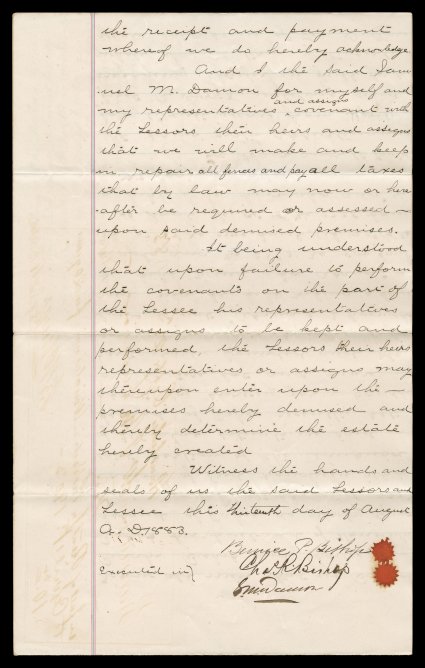 the receipt and payment
whereof we do hereby acknowledge
And I the said Sam
uel M. Damon for myself and
and assigns
my representatives covenant with
the Lessors their heirs and assigns
that we will make and keep
in repair all fences and pay all taxes
that by law may now or here
after be required or assessed —
upon said demised premises.
It being understood
that upon failure to perform
the covenants on the part of
the Lessee his representatives
or assigns to be kept and
performed, the Lessors their heirs
representatives or assigns may
thereupon enter upon the —
premises hereby demised and
thereby determine the estate
hereby created
Witness the hands and
seals of us the said Lessors and
Lessee this thirteenth day of August
A. D. 1883.
Bernice P. Bishop
Executed in}
Chas R Bishop
S M Damon